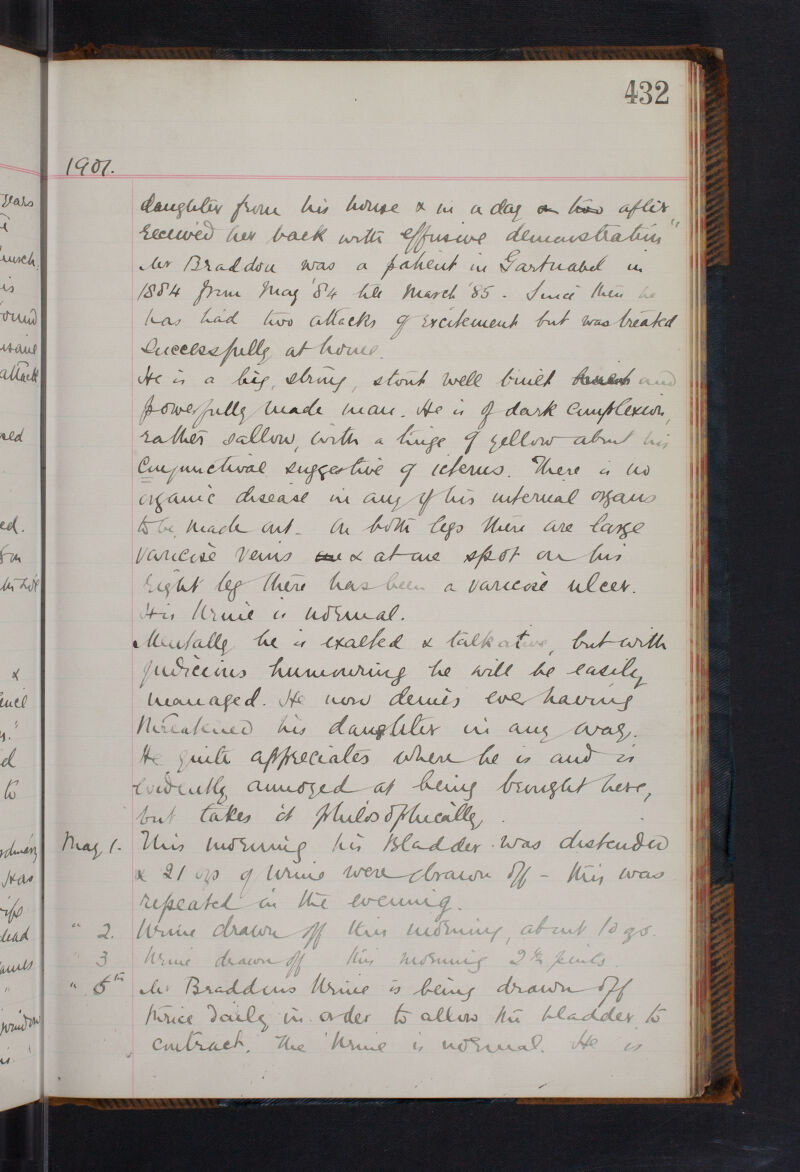 432
1901.
daughter from his house & in a day or two after
received her back with effusive demonstration"
Mr Braddon was a patient in Gartnavel in
1884 from May '84 till March '85. Since then he
has had two attacks of excitement but was treated
successfully at home.
He is a big, strong, stout well built and
powerfully made man. He is of dark complexion,
rather sallow, with a tinge of yellow about his
Conjunctivae suggestive of icterus. There is no
organic disease in any of his internal organs
to be made out. On both legs there are large
varicose veins & at one spot on his
right leg there has been a varicose ulcer.
His Urine is normal.
Mentally he is exalted & talkative, but with
judicious humouring he will be easily
managed. He now denies ever having
threatened his daughter in any way.
He quite appreciates where he is and is
evidently annoyed at being brought here,
but takes it philosophically.
May 1. This morning his Bladder was distended
& 21 ozs of Urine were drawn off - this was
repeated in the evening.
" 2. Urine drawn off this morning, about 10 ozs.
" 3 Urine drawn off this morning 2½ pints.
" 5th Mr Braddons Urine is being drawn off
twice daily in order to allow the bladder to
contract. The Urine is normal. He is